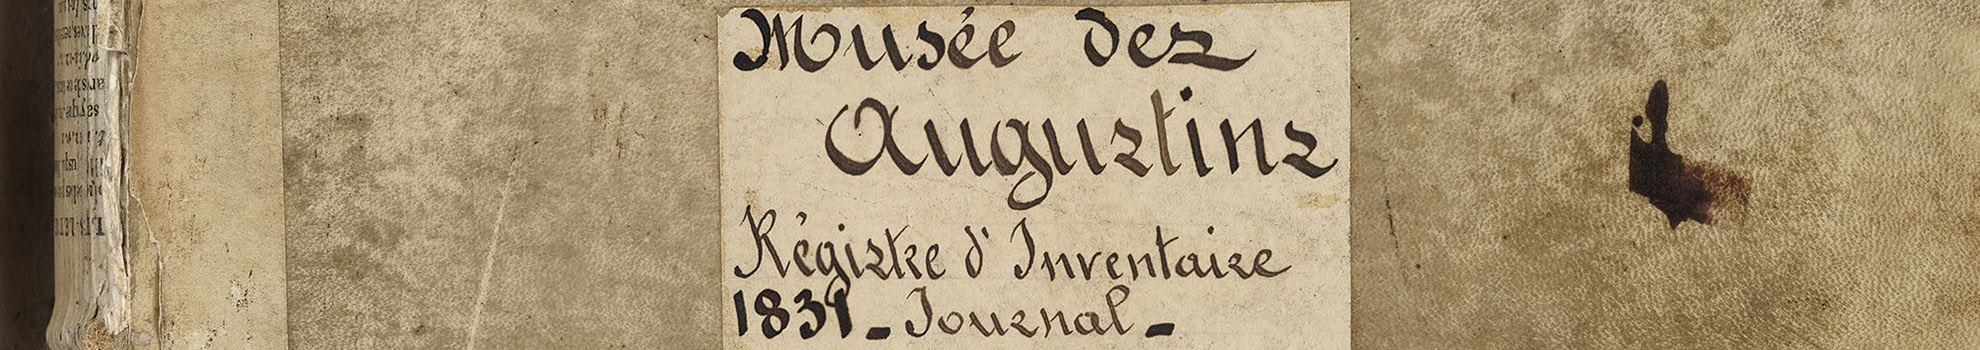 Musée des
Augustins
Régistre d'Inventaire
1831 - Journal -